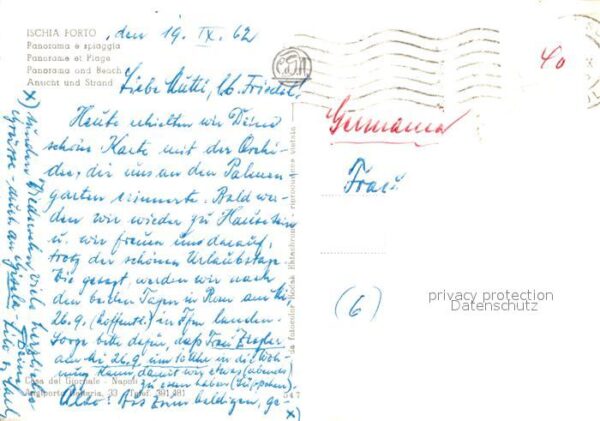 ISCHIA PORTO
Panorama e spiaggia
Panorama et Plage
Panorama and Beach
Ansicht und Strand
, den 19. IX. 62
Liebe Mutti, lb. Friedel!
Heute erhielten wir Deine
schöne Karte mit der Orchi-
dee, die uns an den Palmen-
garten erinnerte. Bald wer-
den wir wieder zu Hause sein
u. wir freuen uns darauf,
trotz der schönen Urlaubstage.
Wie gesagt, werden wir nach
den beiden Tagen in Rom am Mi,
26.9. (hoffentl.) in Ffm landen.
Sorge bitte dafür, daß Frau Ziegler
am Mi 26.9. um 10 Uhr in die Woh-
nung kann, damit wir etwas (abends)
zu essen haben (Süppchen).
Also! Bis zum baldigen, ge-
x)
x) sunden Wiedersehn viele herzliche
Grüsse - auch an Gisela -
Casa del Giornale - Napoli
547
CDA
Germania
Frau
40
(6)
privacy protection
Datenschutz